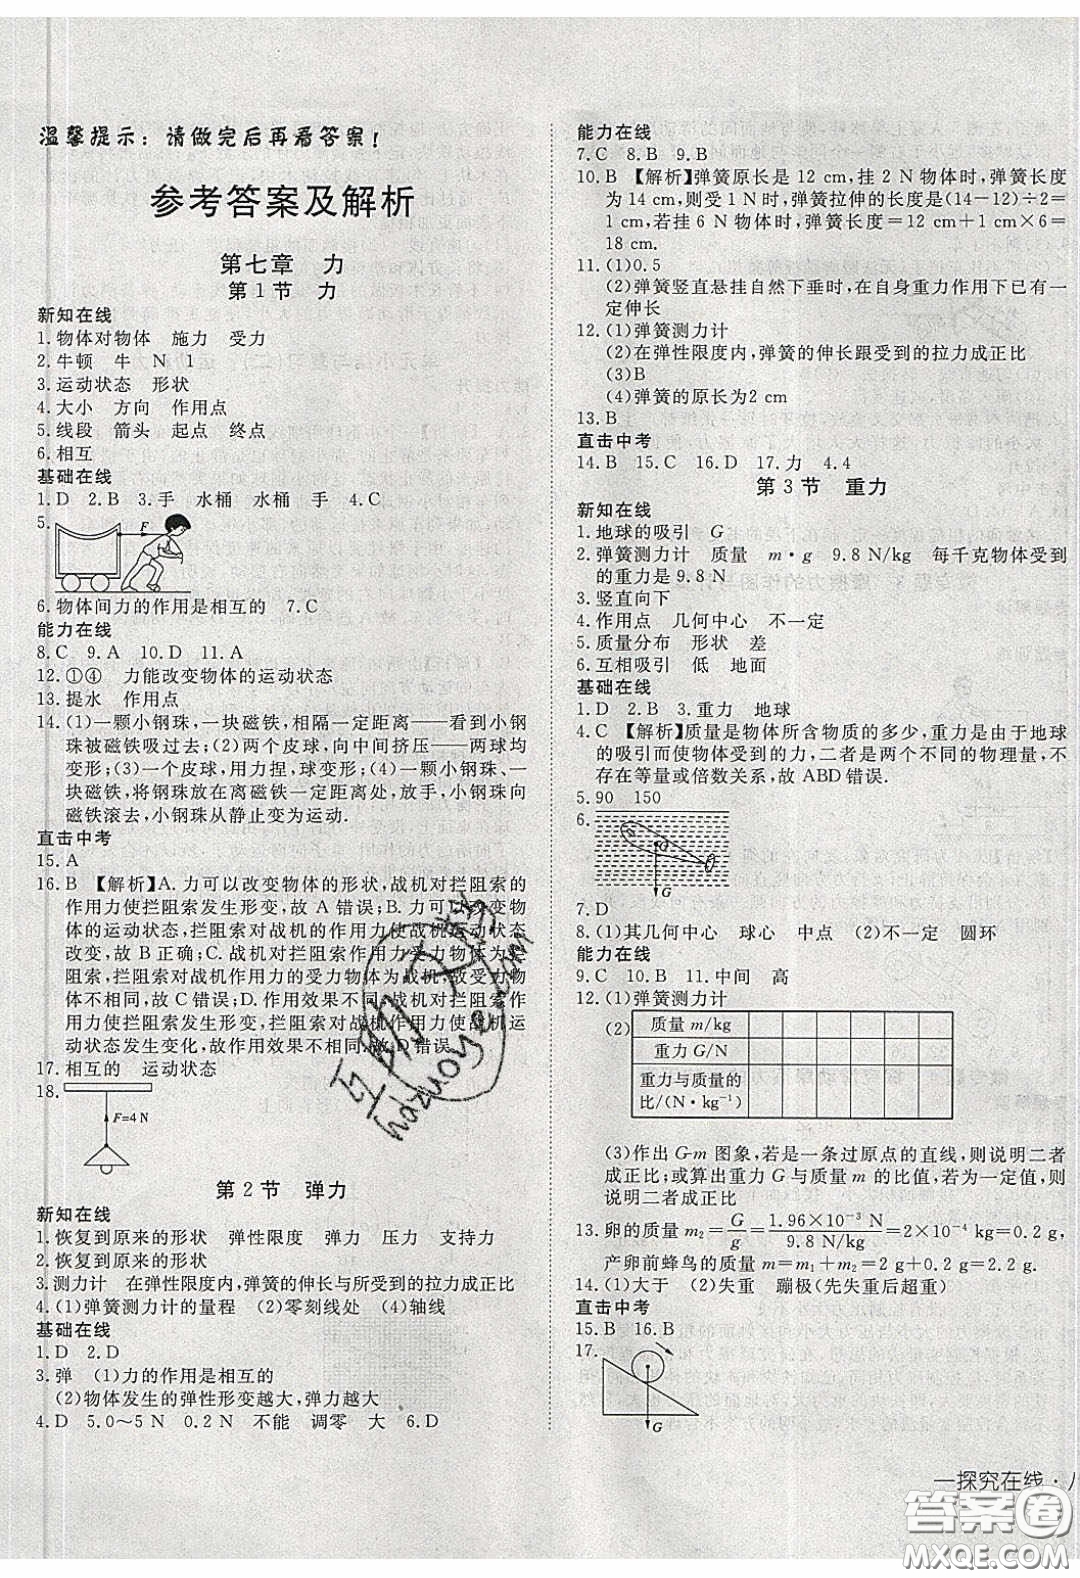 温馨提示：请做完后再看答案！
参考答案及解析
第七章　力
第1节　力
新知在线
1. 物体对物体　施力　受力
2. 牛顿　牛　N　1
3. 运动状态　形状
4. 大小　方向　作用点
5. 线段　箭头　起点　终点
6. 相互
基础在线
1. D　2. B　3. 手　水桶　水桶　手　4. C
5.
F
6. 物体间力的作用是相互的　7. C
能力在线
8. C　9. A　10. D　11. A
12. ①④　力能改变物体的运动状态
13. 提水　作用点
14. (1)一颗小钢珠，一块磁铁，相隔一定距离——看到小钢
珠被磁铁吸过去；(2)两个皮球，向中间挤压——两球均
变形；(3)一个皮球，用力捏，球变形；(4)一颗小钢珠、一
块磁铁，将钢珠放在离磁铁一定距离处，放手，小钢珠向
磁铁滚去，小钢珠从静止变为运动.
直击中考
15. A
16. B　【解析】A. 力可以改变物体的形状，战机对拦阻索的
作用力使拦阻索发生形变，故 A 错误；B. 力可以改变物
体的运动状态，拦阻索对战机的作用力使战机运动状态
改变，故 B 正确；C. 战机对拦阻索作用力的受力物体为拦
阻索，拦阻索对战机作用力的受力物体为战机，故受力物
体不相同，故 C 错误；D. 作用效果不同，战机对拦阻索的
作用力使拦阻索发生形变，拦阻索对战机作用力使战机运
动状态发生变化，故作用效果不同，故 D 错误.
17. 相互的　运动状态
18.
F=4 N
第2节　弹力
新知在线
1. 恢复到原来的形状　弹性限度　弹力　压力　支持力
2. 恢复到原来的形状
3. 测力计　在弹性限度内，弹簧的伸长与所受到的拉力成正比
4. (1)弹簧测力计的量程　(2)零刻线处　(4)轴线
基础在线
1. D　2. D
3. 弹　(1)力的作用是相互的
(2)物体发生的弹性形变越大，弹力越大
4. D　5. 0～5 N　0.2 N　不能　调零　大　6. D
能力在线
7. C　8. B　9. B
10. B　【解析】弹簧原长是 12 cm，挂 2 N 物体时，弹簧长度
为 14 cm，则受 1 N 时，弹簧拉伸的长度是(14－12)÷2＝
1 cm. 若挂 6 N 物体时，弹簧长度＝12 cm＋1 cm×6＝
18 cm.
11. (1)0.5
(2)弹簧竖直悬挂自然下垂时，在自身重力作用下已有一
定伸长
12. (1)弹簧测力计
(2)在弹性限度内，弹簧的伸长跟受到的拉力成正比
(3)B
(4)弹簧的原长为2 cm
13. B
直击中考
14. B　15. C　16. D　17. 力　4.4
第3节　重力
新知在线
1. 地球的吸引　G
2. 弹簧测力计　质量　m·g　9.8 N/kg　每千克物体受到
的重力是 9.8 N
3. 竖直向下
4. 作用点　几何中心　不一定
5. 质量分布　形状　差
6. 互相吸引　低　地面
基础在线
1. D　2. B　3. 重力　地球
4. C　【解析】质量是物体所含物质的多少，重力是由于地球
的吸引而使物体受到的力，二者是两个不同的物理量，不
存在等量或倍数关系，故 ABD 错误.
5. 90　150
6.
O
G
7. D
8. (1)其几何中心　球心　中点　(2)不一定　圆环
能力在线
9. C　10. B　11. 中间　高
12. (1)弹簧测力计
(2)
质量 m/kg
重力 G/N
重力与质量的
比/(N·kg⁻¹)
(3)作出 G-m 图象，若是一条过原点的直线，则说明二者
成正比；或算出重力 G 与质量 m 的比值，若为一定值，则
说明二者成正比
13. 卵的质量 m₂＝G/g＝1.96×10⁻³ N/9.8 N/kg＝2×10⁻⁴ kg＝0.2 g，
产卵前蜂鸟的质量 m＝m₁＋m₂＝2 g＋0.2 g＝2.2 g.
14. (1)大于　(2)失重　蹦极(先失重后超重)
直击中考
15. B　16. B
17.
G
一探究在线·八
互助文学
hdzuoye.com
答案圈
MXQE.COM